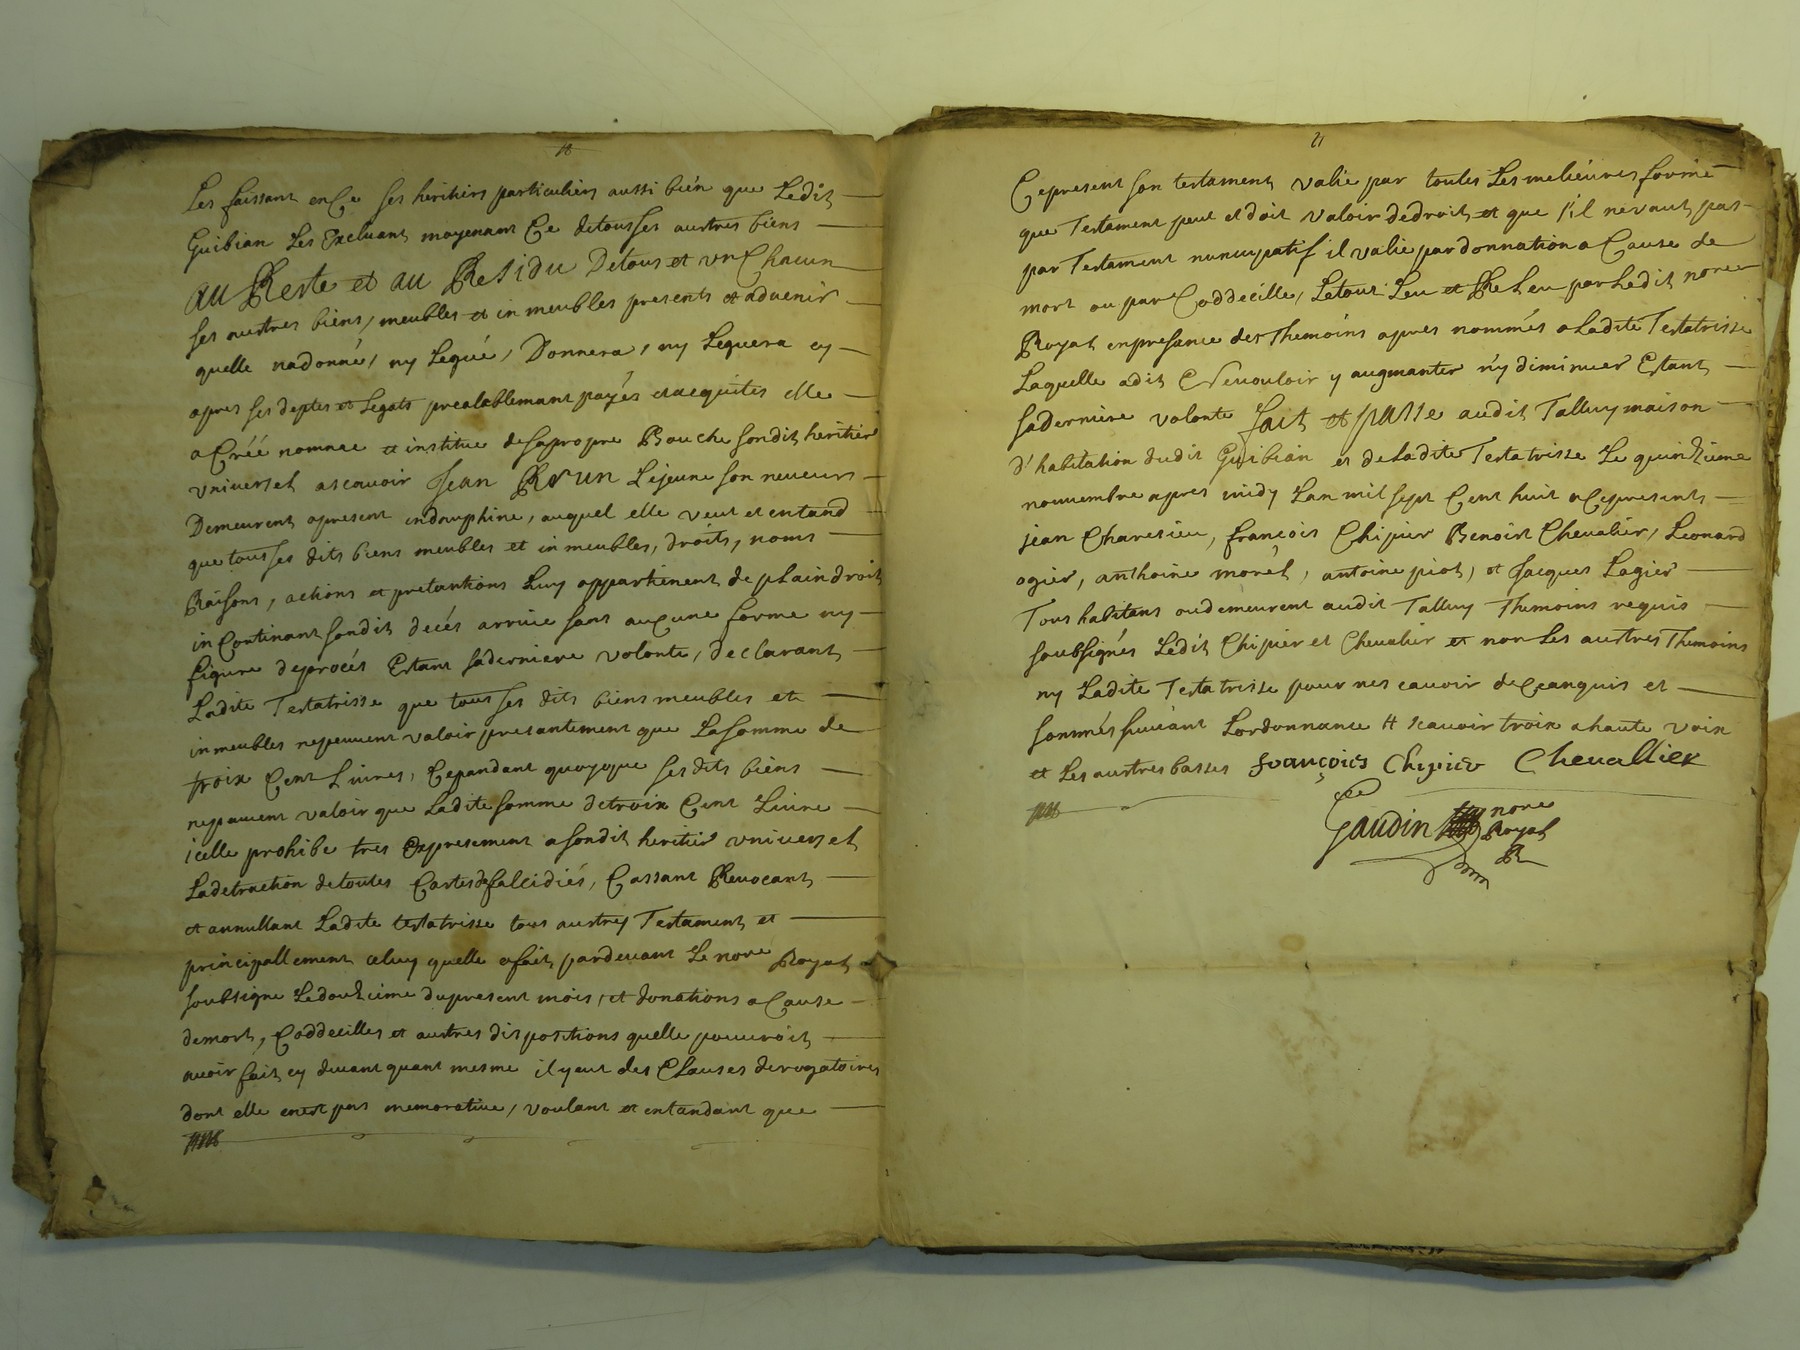 18
Les faissant en Ce ses heritiers particuliers aussi bién que Ledit
Guibian Les Excluant moyenant Ce detousses austres biens
au Reste et au Residu Detous et vn Chacun
ses austres biens, meubles et inmeubles presents et aduenir
quelle nadonné, ny Legué, Donnera, ny Leguera cy
apres ses deptes et Legats prealablemant payés etacquités elle
a Créé nommee et institue desapropre Bouche sondit heritier
vniversel ascauoir Jean Brun Lejeune son neueur
Demeurent apresent endauphine, auquel elle veut et entand
que tousses dits biens meubles et inmeubles, dróits, noms
Raisons, actions et pretantions Luy appartienent de plaindroit
inContinant sondit decés arriué sans auCune forme ny
figure deprocés Estant saderniere volonte, declarant
Ladite Testatrisse que tous ses dits biens meubles et
inmeubles nepeuuent valoir presantement que Lasomme de
troix Cent Liures, Cepandant quoyque sesdits biens
nepauuent valoir que Ladite somme detroix Cent Liure
icelle prohibe tres Expresement asondit heritier vniversel
Ladetraction detoutes Cartes de falcidiés, Cassant Reuocant
et annullant Ladite testatrisse tous austres Testament et
principallement celuy quelle afait pardeuant Le nore Royal
soubsigne Ledouzieme dupresent mois, et donations a Cause
demort, Coddecilles et austres dispositions quelle pouuróit
auoir fait cy deuant quant mesme il yeut des Clauses derogatoires
dont elle enest pas memoratiue, voulant et entandant que
21
Cepresent son testament valie par toutes Les melieures forme
que Testament peut et doit valoir dedroit et que s'il nevaut pas
par Testament nuncupatif il valie par donnation a Cause de
mort ou par Coddecille, Letout Leu et ReLeu par Ledit nore
Royal enpresance des Themoins apres nommés a Ladite Testatrisse
Laquelle adit Neuouloir y augmanter n'y diminuer Estant
saderniere volonte fait et passe audit Talluy maison
d'habitation dudit Guibian et deLadite Testatrisse Le quinzieme
nouuembre apres midy Lan mil sept Cent huit aCepresents
jean Charesieu, françois Chipier Benoist Cheualier, Leonard
ogier, anthoine morél, antoine piot, et Jacques Lagier
Tous habitans oudemeurent audit Talluy Themoins requis
soubsignés Ledit Chipier et Cheualier et non Les austres Themoins
ny Ladite Testatrisse pour nescauoir deCeanquis et
sommés suiuant Lordonnance # scauoir troix ahaute voix
et Les austres basses françois Chipier Cheuallier
Gaudin nore
Royal